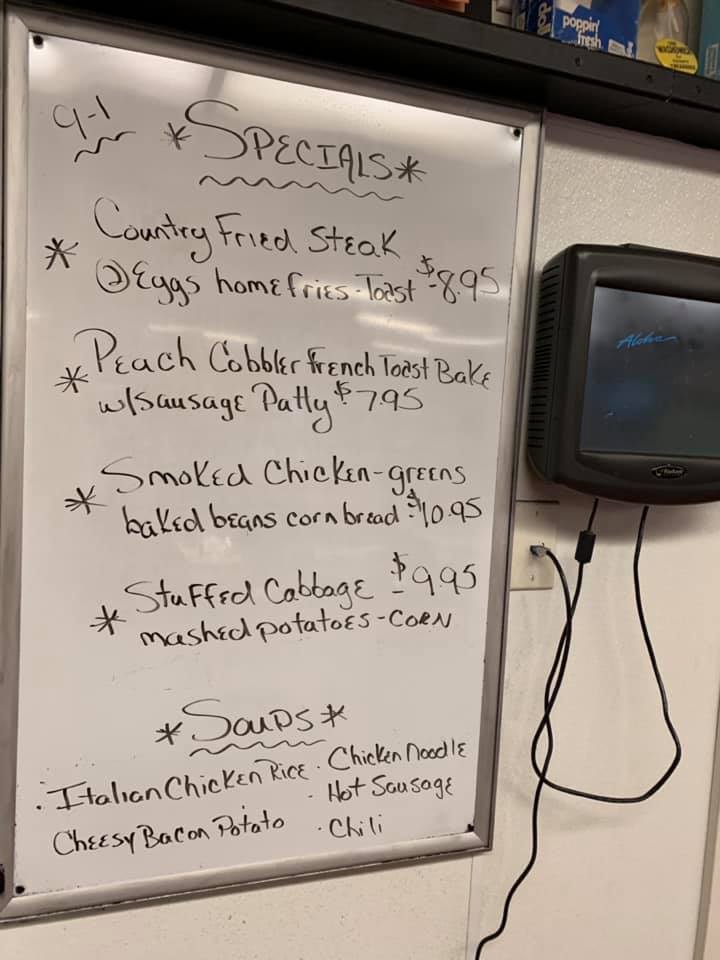 poppin'
fresh
9-1
*SPECIALS*
* Country Fried Steak
② Eggs home fries - Toast $8.95
* Peach Cobbler french Toast Bake
w/sausage Patty $7.95
* Smoked Chicken - greens
baked beans corn bread - $10.95
* Stuffed Cabbage - $9.95
mashed potatoes - CORN
*Soups*
· Italian Chicken Rice · Chicken Noodle
· Hot Sausage
Cheesy Bacon Potato · Chili
Aloha